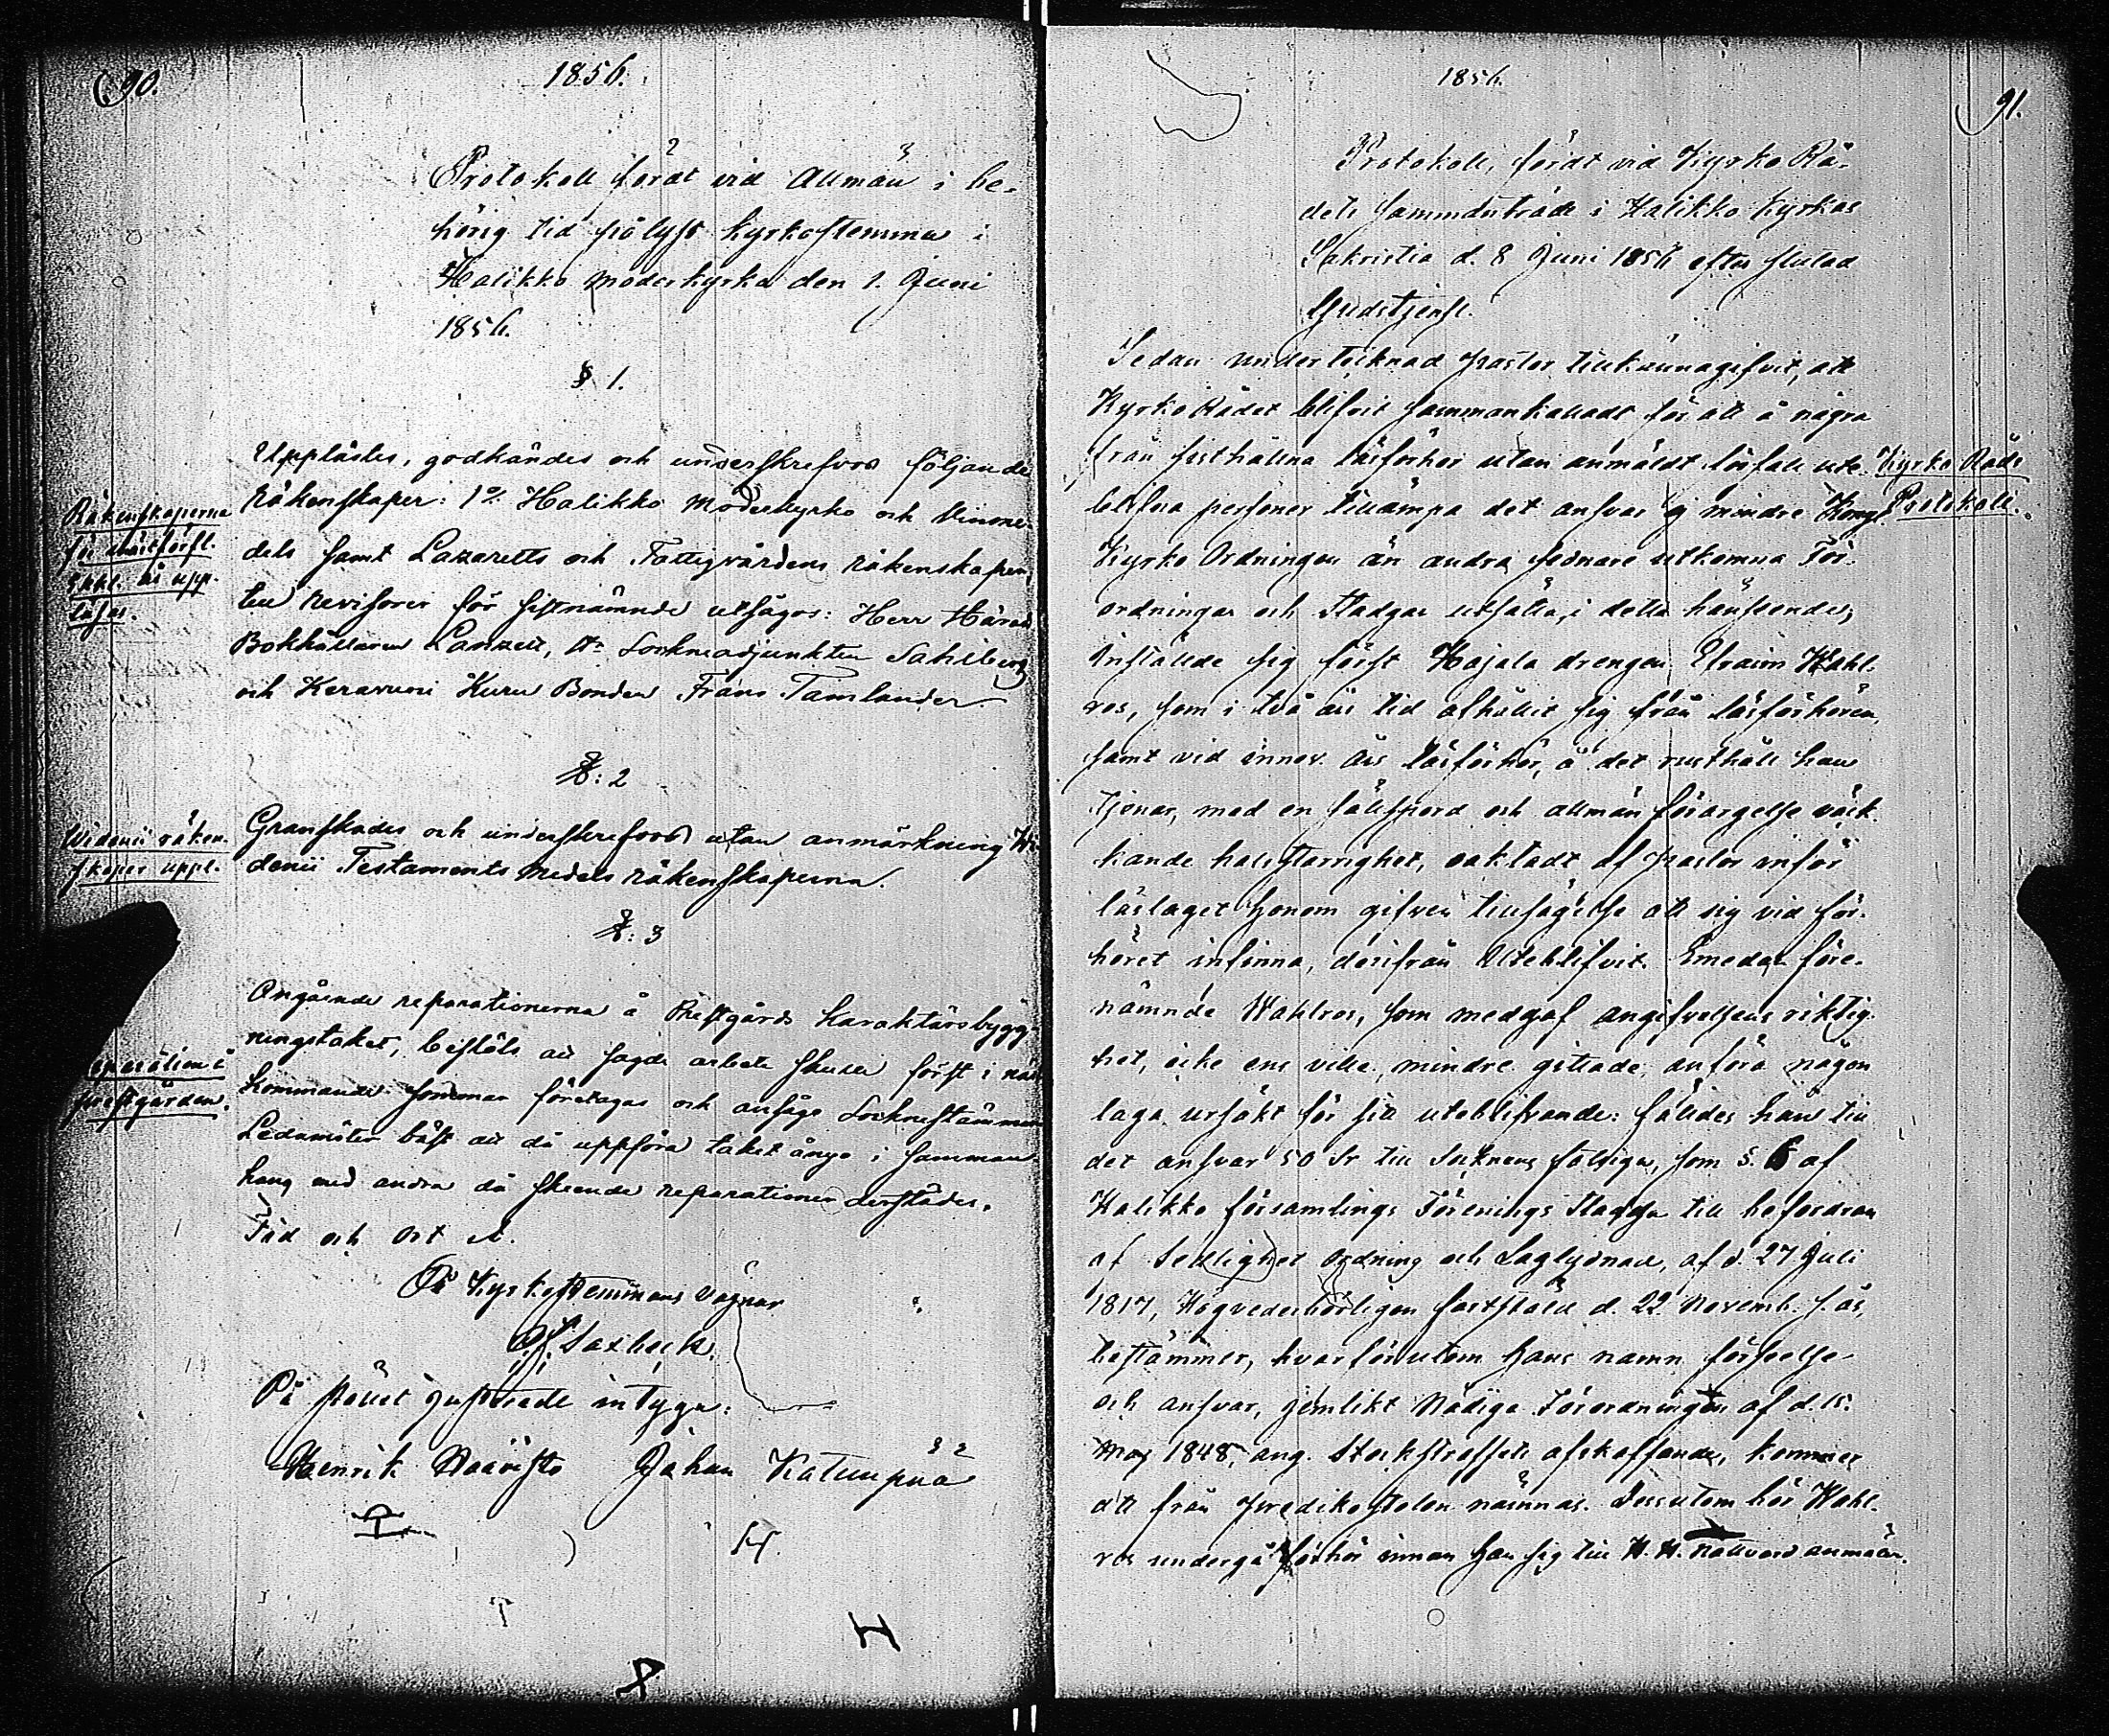 90.
1856.
Protokoll fördt vid Allmän i be-
hörig tid pålyst kyrkostemma i
Halikko moderkyrka den 1. Juni
1856.
§ 1.
Upplästes, godkändes och underskrefvos följande
Räkenskaperna
räkenskaper: 1o Halikko Moderkyrko och Vinme-
för
dels samt Lazaretts och Fattigvårdens räkenskaper,
upp-
till revisorer för sistnämnde utsågos: Herr Härads
lästes.
Bokhållaren Lanzell, Hr Sockneadjunkten Sahlberg
och Keravuori Kuru Bonden Frans Tamlander
§: 2
Widenii räken-
skaper uppl.
Granskades och underskrefvos utan anmärkning Wi-
denii Testaments medels räkenskaperna.
§: 3
Angående reparationerna å Prestgårds karaktärsbygg-
ningstaket, beslöts att sagde arbete skulle först i näst-
reparation å
prestgården.
kommande sommar företagas och ansågo Sockenstämmans
Ledamöter bäst att då uppföra taket ånyo i samman-
hang med andra då skeende reparationer derstädes.
Tid och Ort S.
På Kyrkostemmans vägnar
Saxbeck.
På stället justeradt intyga:
Henrik Naavisto Johan Katumpää
1856.
91.
Protokoll, fördt vid Kyrko Rå-
dets sammanträde i Halikko Kyrkas
Sakristia d. 8 Juni 1856 efter slutad
Gudstjenst.
Sedan undertecknad pastor tillkännagifvit, att
Kyrko Rådet blifvit sammankalladt för att å några
från sisthållna läsförhör utan anmäldt förfall ute-
Kyrko Råds
Protokoll.
blifna personer tillämpa det ansvar ej mindre Kongl.
Kyrko Ordningen än andra sednare utkomna För-
ordningar och Stadgar utsätta, i detta hänseende;
Inställde sig först Hajala drengen Efraim Wahl-
ros, som i två års tid afhållit sig från läsförhören,
samt vid innev. års läsförhör, å det rusthåll han
tjenar, med en sällspord och allmän förargelse väck-
kande halsstarrighet, oaktadt af pastor inför
läslaget honom gifven tillsägelse att sig vid för-
höret infinna, derifrån Uteblifvit. Emedan före-
nämnde Wahlros, som medgaf angifvelsens riktig-
het, icke ens ville, mindre gittade, anföra någon
laga ursäkt för sitt uteblifvande: fälldes han till
det ansvar 50 Sr till Socknens fattiga, som §. 6 af
Halikko församlings Förenings Stadga till befordran
af Sedlighet Ordning och Laglydnad, af d. 27 Juli
1817, Högvederbörligen fastställd d. 22 Novemb. s. år,
bestämmer, hvarförutom hans namn, förseelse
och ansvar, jemlikt Nådiga Förordningen af d. 15.
Maj 1848, ang. Stockstraffets afskaffande, kommer
att från predikostolen nämnas. Dessutom bör Wahl-
ros undergå förhör innan han sig till H. H. Nattvard anmäler.